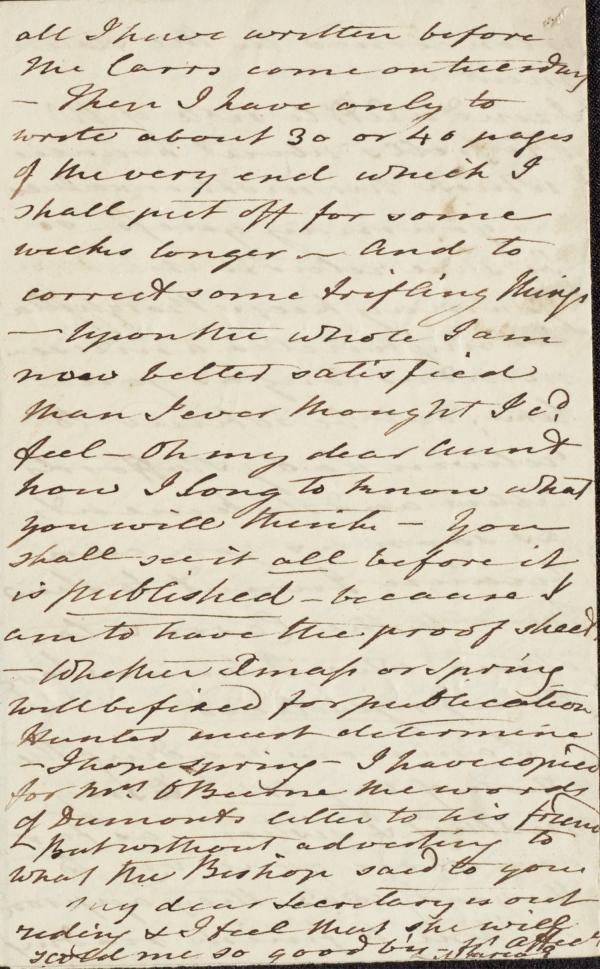 all I have written before
the Carrs come on tuesday
— Then I have only to
write about 30 or 40 pages
of the very end which I
shall put off for some
weeks longer – and to
correct some trifling things
— Upon the whole I am
now better satisfied
than I ever thought I cd.
feel – Oh my dear Aunt
how I long to know what
you will think – You
shall see it all before it
is published – because I
am to have the proof sheets
— Whether Xmass or Spring
will be fixed for publication
Hunter must determine
– I hope spring – I have copied
for Mrs. O'Beirne the words
of Dumonts letter to his friend
– But without adverting to
what the Bishop said to you
my dear secretary is out
riding & I feel that she will
scold me so good bye
Maria